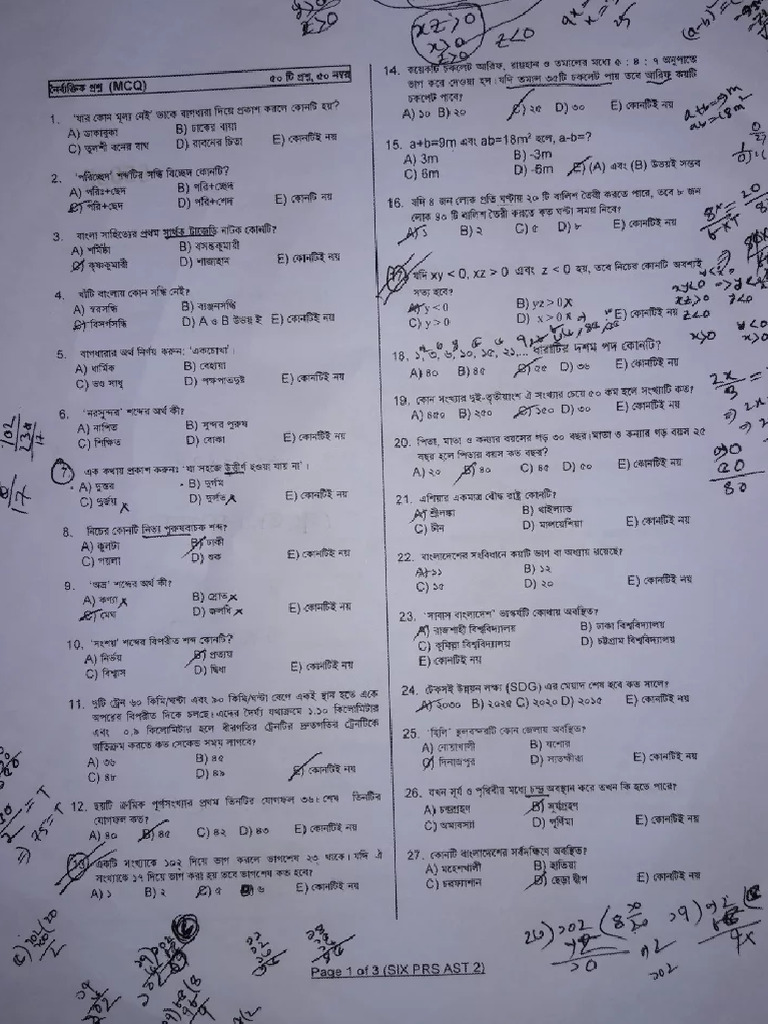 xz>0
x>0
z>0
z<0
নৈর্ব্যক্তিক প্রশ্ন (MCQ) ৫০ টি প্রশ্ন, ৫০ নম্বর
1. 'যার কোন মূল্য নেই' তাকে বাগধারা দিয়ে প্রকাশ করলে কোনটি হয়?
A) ডাকাবুকা B) ঢাকের বায়া
C) তুলসী বনের বাঘ D) রাবনের চিতা E) কোনটি নয়
2. 'পরিচ্ছেদ' শব্দটির সন্ধি বিচ্ছেদ কোনটি?
A) পরিঃ+ছেদ B) পরি+চ্ছেদ
C) পরি+ছেদ D) পরি+শেদ E) কোনটি নয়
3. বাংলা সাহিত্যের প্রথম সার্থক ট্রাজেডি নাটক কোনটি?
A) শর্মিষ্ঠা B) বসন্তকুমারী
C) কৃষ্ণকুমারী D) শাজাহান E) কোনটি নয়
4. খাঁটি বাংলায় কোন সন্ধি নেই?
A) স্বরসন্ধি B) ব্যঞ্জনসন্ধি
C) বিসর্গসন্ধি D) A ও B উভয়ই E) কোনটিই নয়
5. বাগধারার অর্থ নির্ণয় করুন: 'একচোখা'।
A) ধার্মিক B) বেহায়া
C) ভণ্ড সাধু D) পক্ষপাতদুষ্ট E) কোনটিই নয়
6. 'নরসুন্দর' শব্দের অর্থ কী?
A) নাপিত B) সুন্দর পুরুষ
C) শিক্ষিত D) বোকা E) কোনটিই নয়
7. এক কথায় প্রকাশ করুনঃ 'যা সহজে উত্তীর্ণ হওয়া যায় না'।
A) দুস্তর B) দুর্গম
C) দুর্জয় D) দুর্লভ E) কোনটিই নয়
8. নিচের কোনটি নিত্য পুরুষবাচক শব্দ?
A) কুলটা B) ঢাকী
C) পয়লা D) শুক E) কোনটিই নয়
9. 'অভ্র' শব্দের অর্থ কী?
A) কণ্যা B) স্রোত
C) মেঘ D) জলধি E) কোনটিই নয়
10. 'সংশয়' শব্দের বিপরীত শব্দ কোনটি?
A) নির্ভয় B) প্রত্যয়
C) বিশ্বাস D) দ্বিধা E) কোনটিই নয়
11. দুটি ট্রেন ৬০ কিমি/ঘন্টা এবং ৯০ কিমি/ঘন্টা বেগে একই স্থান হতে একে
অপরের বিপরীত দিকে চলছে। এদের দৈর্ঘ্য যথাক্রমে ১.১০ কিলোমিটার
এবং ০.৯ কিলোমিটার হলে ধীরগতির ট্রেনটির দ্রুতগতির ট্রেনটিকে
অতিক্রম করতে কত সেকেন্ড সময় লাগবে?
A) ৩৬ B) ৪৫
C) ৪৮ D) ৪৯ E) কোনটিই নয়
12. ছয়টি ক্রমিক পূর্ণসংখ্যার প্রথম তিনটির যোগফল ৩৬। শেষ তিনটির
যোগফল কত?
A) ৪০ B) ৪৫ C) ৪২ D) ৪৩ E) কোনটিই নয়
13. একটি সংখ্যাকে ১০২ দিয়ে ভাগ করলে ভাগশেষ ২৩ থাকে। যদি ঐ
সংখ্যাকে ১৭ দিয়ে ভাগ করা হয় তবে ভাগশেষ কত হবে?
A) ১ B) ২ C) ৫ D) ৬ E) কোনটিই নয়
14. কয়েকটি চকলেট আরিফ, রায়হান ও তমালের মধ্যে ৫ : ৪ : ৭ অনুপাতে
ভাগ করে দেওয়া হল। যদি তমাল ৩৫টি চকলেট পায় তবে আরিফ কয়টি
চকলেট পাবে?
A) ১০ B) ২০ C) ২৫ D) ৩০ E) কোনটিই নয়
a+b=9m
ab=18m²
15. a+b=9m এবং ab=18m² হলে, a-b=?
A) 3m B) -3m
C) 6m D) -6m E) (A) এবং (B) উভয়ই সম্ভব
16. যদি ৪ জন লোক প্রতি ঘণ্টায় ২০ টি বালিশ তৈরী করতে পারে, তবে ৮ জন
লোক ৪০ টি বালিশ তৈরী করতে কত ঘন্টা সময় নিবে?
A) ১ B) ২ C) ৫ D) ৮ E) কোনটিই নয়
17. যদি xy < 0, xz > 0 এবং z < 0 হয়, তবে নিচের কোনটি অবশ্যই
সত্য হবে?
A) y < 0 B) yz > 0
C) y > 0 D) x > 0 E) কোনটিই নয়
18. ১, ৩, ৬, ১০, ১৫, ২১,... ধারাটির দশম পদ কোনটি?
A) ৪০ B) ৪৫ C) ৫৫ D) ৩৬ E) কোনটিই নয়
19. কোন সংখ্যার দুই-তৃতীয়াংশে ঐ সংখ্যার চেয়ে ৫০ কম হলে সংখ্যাটি কত?
A) ৪৫০ B) ২৫০ C) ১৫০ D) ৩০ E) কোনটিই নয়
20. পিতা, মাতা ও কন্যার বয়সের গড় ৩০ বছর। মাতা ও কন্যার গড় বয়স ২৫
বছর হলে পিতার বয়স কত বছর?
A) ২০ B) ৪০ C) ৪৫ D) ৫০ E) কোনটিই নয়
21. এশিয়ার একমাত্র বৌদ্ধ রাষ্ট্র কোনটি?
A) শ্রীলঙ্কা B) থাইল্যান্ড
C) চীন D) মালয়েশিয়া E) কোনটিই নয়
22. বাংলাদেশের সংবিধানে কয়টি ভাগ বা অধ্যায় রয়েছে?
A) ১১ B) ১২
C) ১৫ D) ২০ E) কোনটিই নয়
23. 'সাবাস বাংলাদেশ' ভাস্কর্যটি কোথায় অবস্থিত?
A) রাজশাহী বিশ্ববিদ্যালয় B) ঢাকা বিশ্ববিদ্যালয়
C) কুমিল্লা বিশ্ববিদ্যালয় D) চট্টগ্রাম বিশ্ববিদ্যালয়
E) কোনটিই নয়
24. টেকসই উন্নয়ন লক্ষ্য (SDG) এর মেয়াদ শেষ হবে কত সালে?
A) ২০৩০ B) ২০২৫ C) ২০২০ D) ২০১৫ E) কোনটিই নয়
25. 'হিলি' স্থলবন্দরটি কোন জেলায় অবস্থিত?
A) নোয়াখালী B) যশোর
C) দিনাজপুর D) সাতক্ষীরা E) কোনটিই নয়
26. যখন সূর্য ও পৃথিবীর মধ্যে চন্দ্র অবস্থান করে তখন কি হতে পারে?
A) চন্দ্রগ্রহণ B) সূর্যগ্রহণ
C) অমাবস্যা D) পূর্ণিমা E) কোনটিই নয়
27. কোনটি বাংলাদেশের সর্বদক্ষিণে অবস্থিত?
A) মহেশখালী B) হাতিয়া
C) চরফ্যাশন D) ছেড়া দ্বীপ E) কোনটিই নয়
Page 1 of 3 (SIX PRS AST 2)